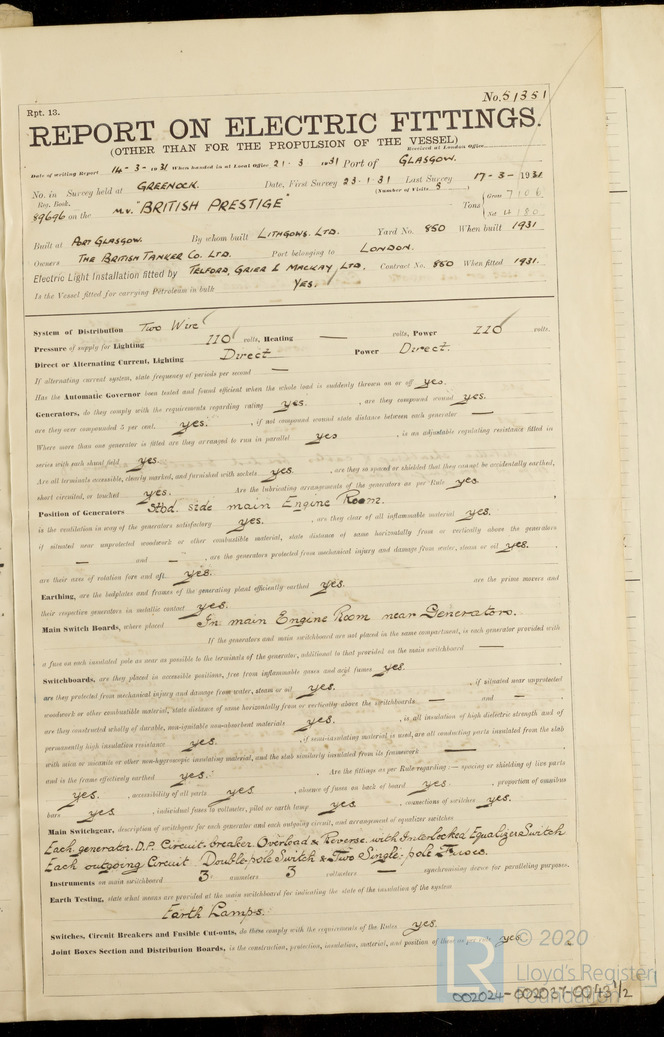 No. 51351
Rpt. 13.
REPORT ON ELECTRIC FITTINGS.
(OTHER THAN FOR THE PROPULSION OF THE VESSEL)
Received at London Office
Date of writing Report 14-3-1931 When handed in at Local Office 21.3.1931 Port of GLASGOW.
No. in Survey held at GREENOCK. Date, First Survey 23.1.31 Last Survey 17-3-1931
Reg. Book. (Number of Visits 5)
89696 on the M.V. "BRITISH PRESTIGE" Tons { Gross 7106 Net 4180
Built at PORT GLASGOW. By whom built LITHGOWS. LTD. Yard No. 850 When built 1931
Owners THE BRITISH TANKER CO. LTD. Port belonging to LONDON.
Electric Light Installation fitted by TELFORD, GRIER & MACKAY LTD. Contract No. 850 When fitted 1931.
Is the Vessel fitted for carrying Petroleum in bulk YES.
System of Distribution Two Wire
Pressure of supply for Lighting 110 volts, Heating — volts, Power 110 volts.
Direct or Alternating Current, Lighting Direct Power Direct.
If alternating current system, state frequency of periods per second —
Has the Automatic Governor been tested and found efficient when the whole load is suddenly thrown on or off yes.
Generators, do they comply with the requirements regarding rating yes. , are they compound wound yes.
are they over compounded 5 per cent. yes. , if not compound wound state distance between each generator —
Where more than one generator is fitted are they arranged to run in parallel yes , is an adjustable regulating resistance fitted in
series with each shunt field yes.
Are all terminals accessible, clearly marked, and furnished with sockets yes. , are they so spaced or shielded that they cannot be accidentally earthed,
short circuited, or touched yes. Are the lubricating arrangements of the generators as per Rule yes
Position of Generators Stbd. side main Engine Room.
is the ventilation in way of the generators satisfactory yes. , are they clear of all inflammable material yes.
if situated near unprotected woodwork or other combustible material, state distance of same horizontally from or vertically above the generators
— and — , are the generators protected from mechanical injury and damage from water, steam or oil yes.
are their axes of rotation fore and aft yes.
Earthing, are the bedplates and frames of the generating plant efficiently earthed yes. are the prime movers and
their respective generators in metallic contact yes.
Main Switch Boards, where placed In main Engine Room near Generators.
If the generators and main switchboard are not placed in the same compartment, is each generator provided with
a fuse on each insulated pole as near as possible to the terminals of the generator, additional to that provided on the main switchboard —
Switchboards, are they placed in accessible positions, free from inflammable gases and acid fumes yes.
are they protected from mechanical injury and damage from water, steam or oil yes. , if situated near unprotected
woodwork or other combustible material, state distance of same horizontally from or vertically above the switchboards — and —
are they constructed wholly of durable, non-ignitable non-absorbent materials yes. , is all insulation of high dielectric strength and of
permanently high insulation resistance yes. , if semi-insulating material is used, are all conducting parts insulated from the slab
with mica or micanite or other non-hygroscopic insulating material, and the slab similarly insulated from its framework —
and is the frame effectively earthed yes. Are the fittings as per Rule regarding:— spacing or shielding of live parts
yes. , accessibility of all parts yes , absence of fuses on back of board yes. , proportion of omnibus
bars yes , individual fuses to voltmeter, pilot or earth lamp yes , connections of switches yes.
Main Switchgear, description of switchgear for each generator and each outgoing circuit, and arrangement of equalizer switches
Each generator. D.P. Circuit-breaker Overload & Reverse with Interlocked Equalizer Switch
Each outgoing Circuit Double-pole Switch & Two Single-pole Fuses.
Instruments on main switchboard 3 ammeters 3 voltmeters — synchronising device for paralleling purposes.
Earth Testing, state what means are provided at the main switchboard for indicating the state of the insulation of the system
Earth Lamps.
Switches, Circuit Breakers and Fusible Cut-outs, do these comply with the requirements of the Rules yes.
Joint Boxes Section and Distribution Boards, is the construction, protection, insulation, material, and position of these as per rule yes.
© 2020
LR
Lloyd's Register
Foundation
002024-002037-0043 1/2